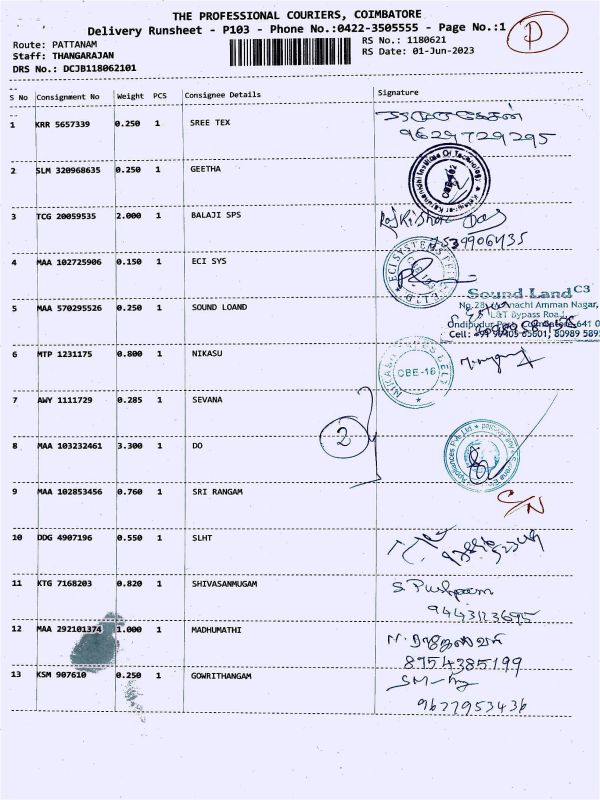 THE PROFESSIONAL COURIERS, COIMBATORE
Delivery Runsheet - P103 - Phone No.:0422-3505555 - Page No.:1
P
Route: PATTANAM
RS No.: 1180621
Staff: THANGARAJAN
RS Date: 01-Jun-2023
DRS No.: DCJB118062101
S No Consignment No Weight PCS Consignee Details Signature
1 KRR 5657339 0.250 1 SREE TEX
9629729295
2 SLM 320968635 0.250 1 GEETHA
Institute Of Technology
3 TCG 20059535 2.000 1 BALAJI SPS
Raj Kishor Das
4 MAA 102725906 0.150 1 ECI SYS
ECI SYSTEMS
5 MAA 570295526 0.250 1 SOUND LOAND
Sound Land C3
Amman Nagar,
L&T Bypass Road,
6 MTP 1231175 0.800 1 NIKASU
CBE-18
7 AWY 1111729 0.285 1 SEVANA
2
8 MAA 103232461 3.300 1 DO
Appliances Pvt. Ltd.
9 MAA 102853456 0.760 1 SRI RANGAM
C/N
10 DDG 4907196 0.550 1 SLHT
11 KTG 7168203 0.820 1 SHIVASANMUGAM
S. Pushpam
9443123695
12 MAA 292101374 1.000 1 MADHUMATHI
8754385199
13 KSM 907610 0.250 1 GOWRITHANGAM
9677953436